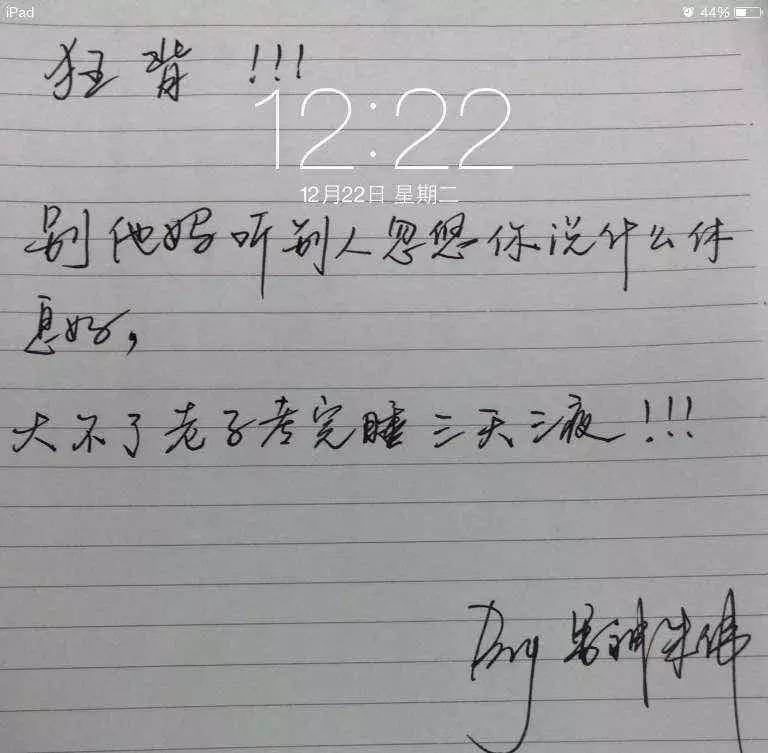 iPad
44%
狂背!!!
12:22
12月22日 星期二
别他妈听别人忽悠你说什么休
息好,
大不了老子考完睡三天三夜!!!
男神朱伟